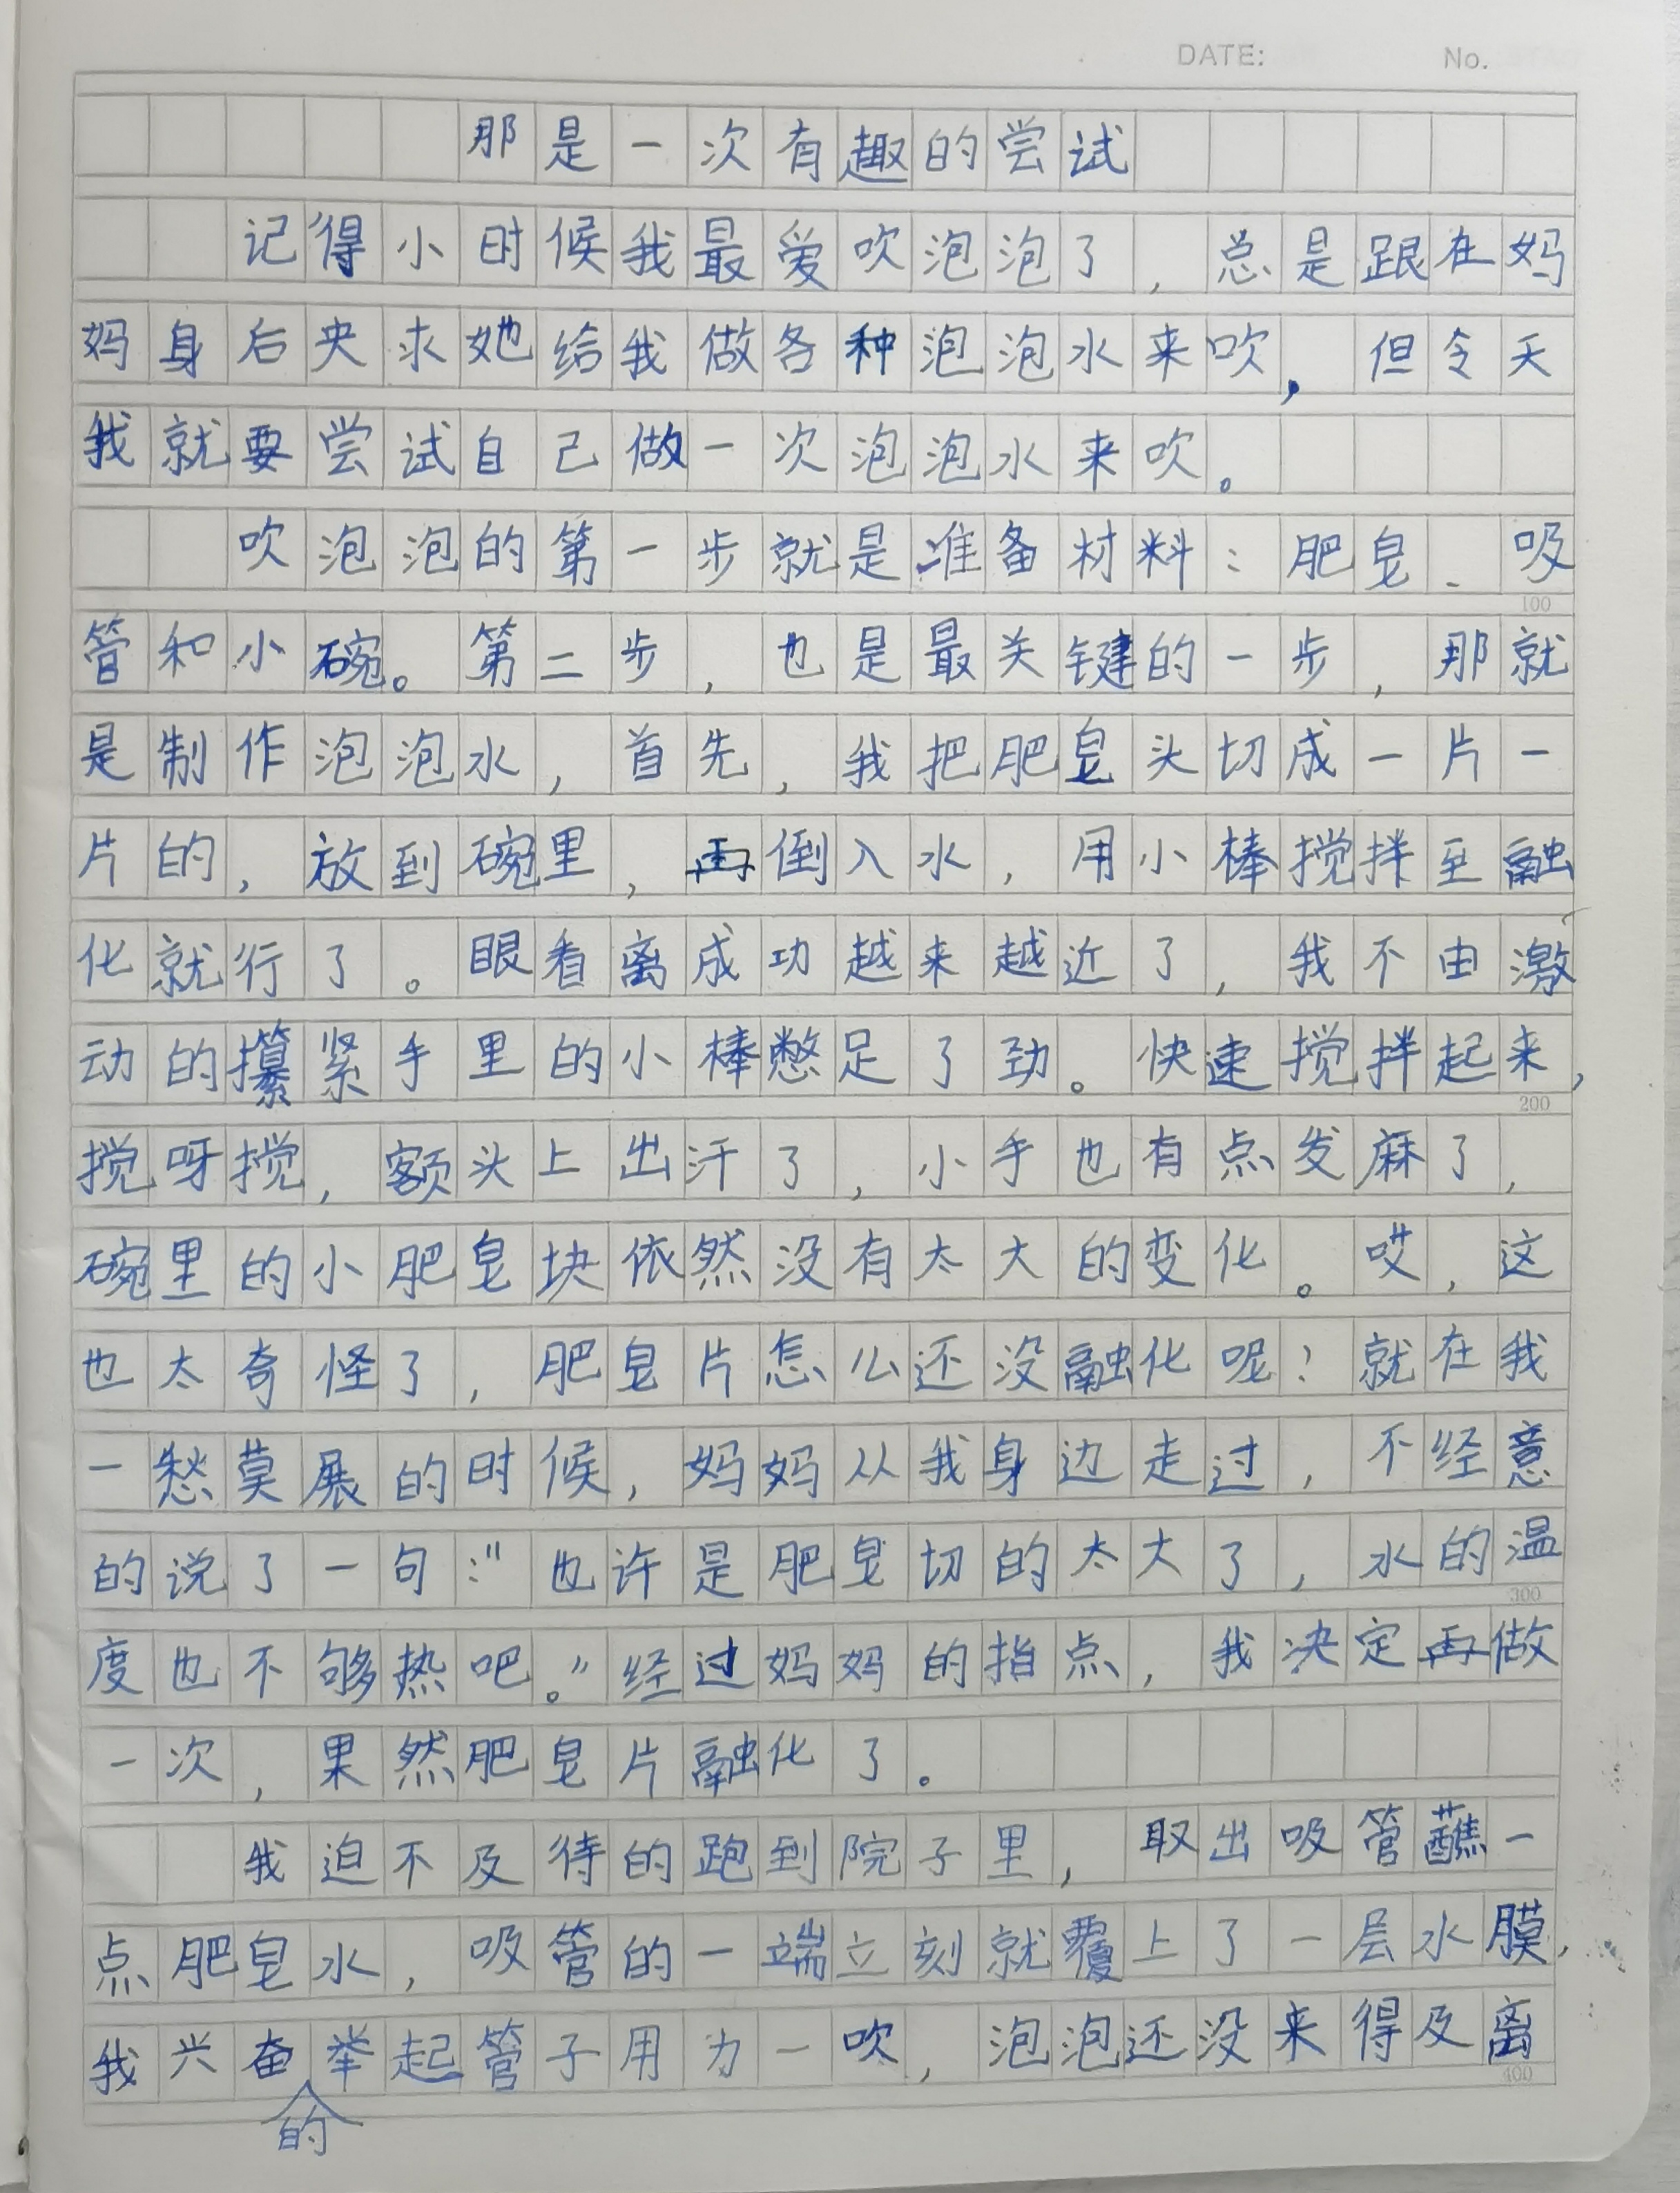 DATE: No.
那是一次有趣的尝试
记得小时候我最爱吹泡泡了，总是跟在妈
妈身后央求她给我做各种泡泡水来吹，但今天
我就要尝试自己做一次泡泡水来吹。
吹泡泡的第一步就是准备材料：肥皂、吸
100
管和小碗。第二步，也是最关键的一步，那就
是制作泡泡水，首先，我把肥皂头切成一片一
片的，放到碗里，再倒入水，用小棒搅拌至融
化就行了。眼看离成功越来越近了，我不由激
动的攥紧手里的小棒憋足了劲。快速搅拌起来，
200
搅呀搅，额头上出汗了，小手也有点发麻了，
碗里的小肥皂块依然没有太大的变化。哎，这
也太奇怪了，肥皂片怎么还没融化呢？就在我
一愁莫展的时候，妈妈从我身边走过，不经意
的说了一句：“也许是肥皂切的太大了，水的温
300
度也不够热吧。”经过妈妈的指点，我决定再做
一次，果然肥皂片融化了。
我迫不及待的跑到院子里，取出吸管蘸一
点肥皂水，吸管的一端立刻就覆上了一层水膜，
我兴奋的举起管子用力一吹，泡泡还没来得及离
400